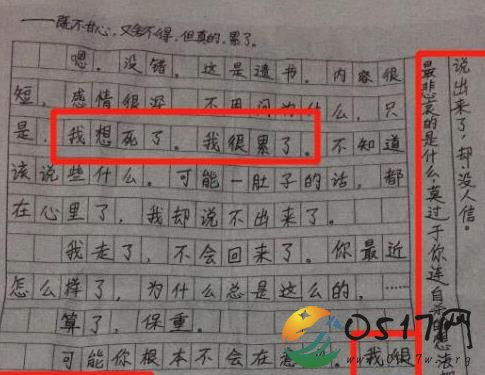 ——既不甘心，又舍不得，但真的，累了。
嗯。没错。这是遗书。内容很
短，感情很深。不用问为什么，只
是，我想死了。我很累了。不知道
该说些什么。可能一肚子的话，都
在心里了，我却说不出来了。
我走了，不会回来了。你最近
怎么样了，为什么总是这么的，……
算了，保重。
可能你根本不会在意 我很
最悲哀的是什么，莫过于你连自杀的想法都
说出来了，却没人信。
0517网
www.7w